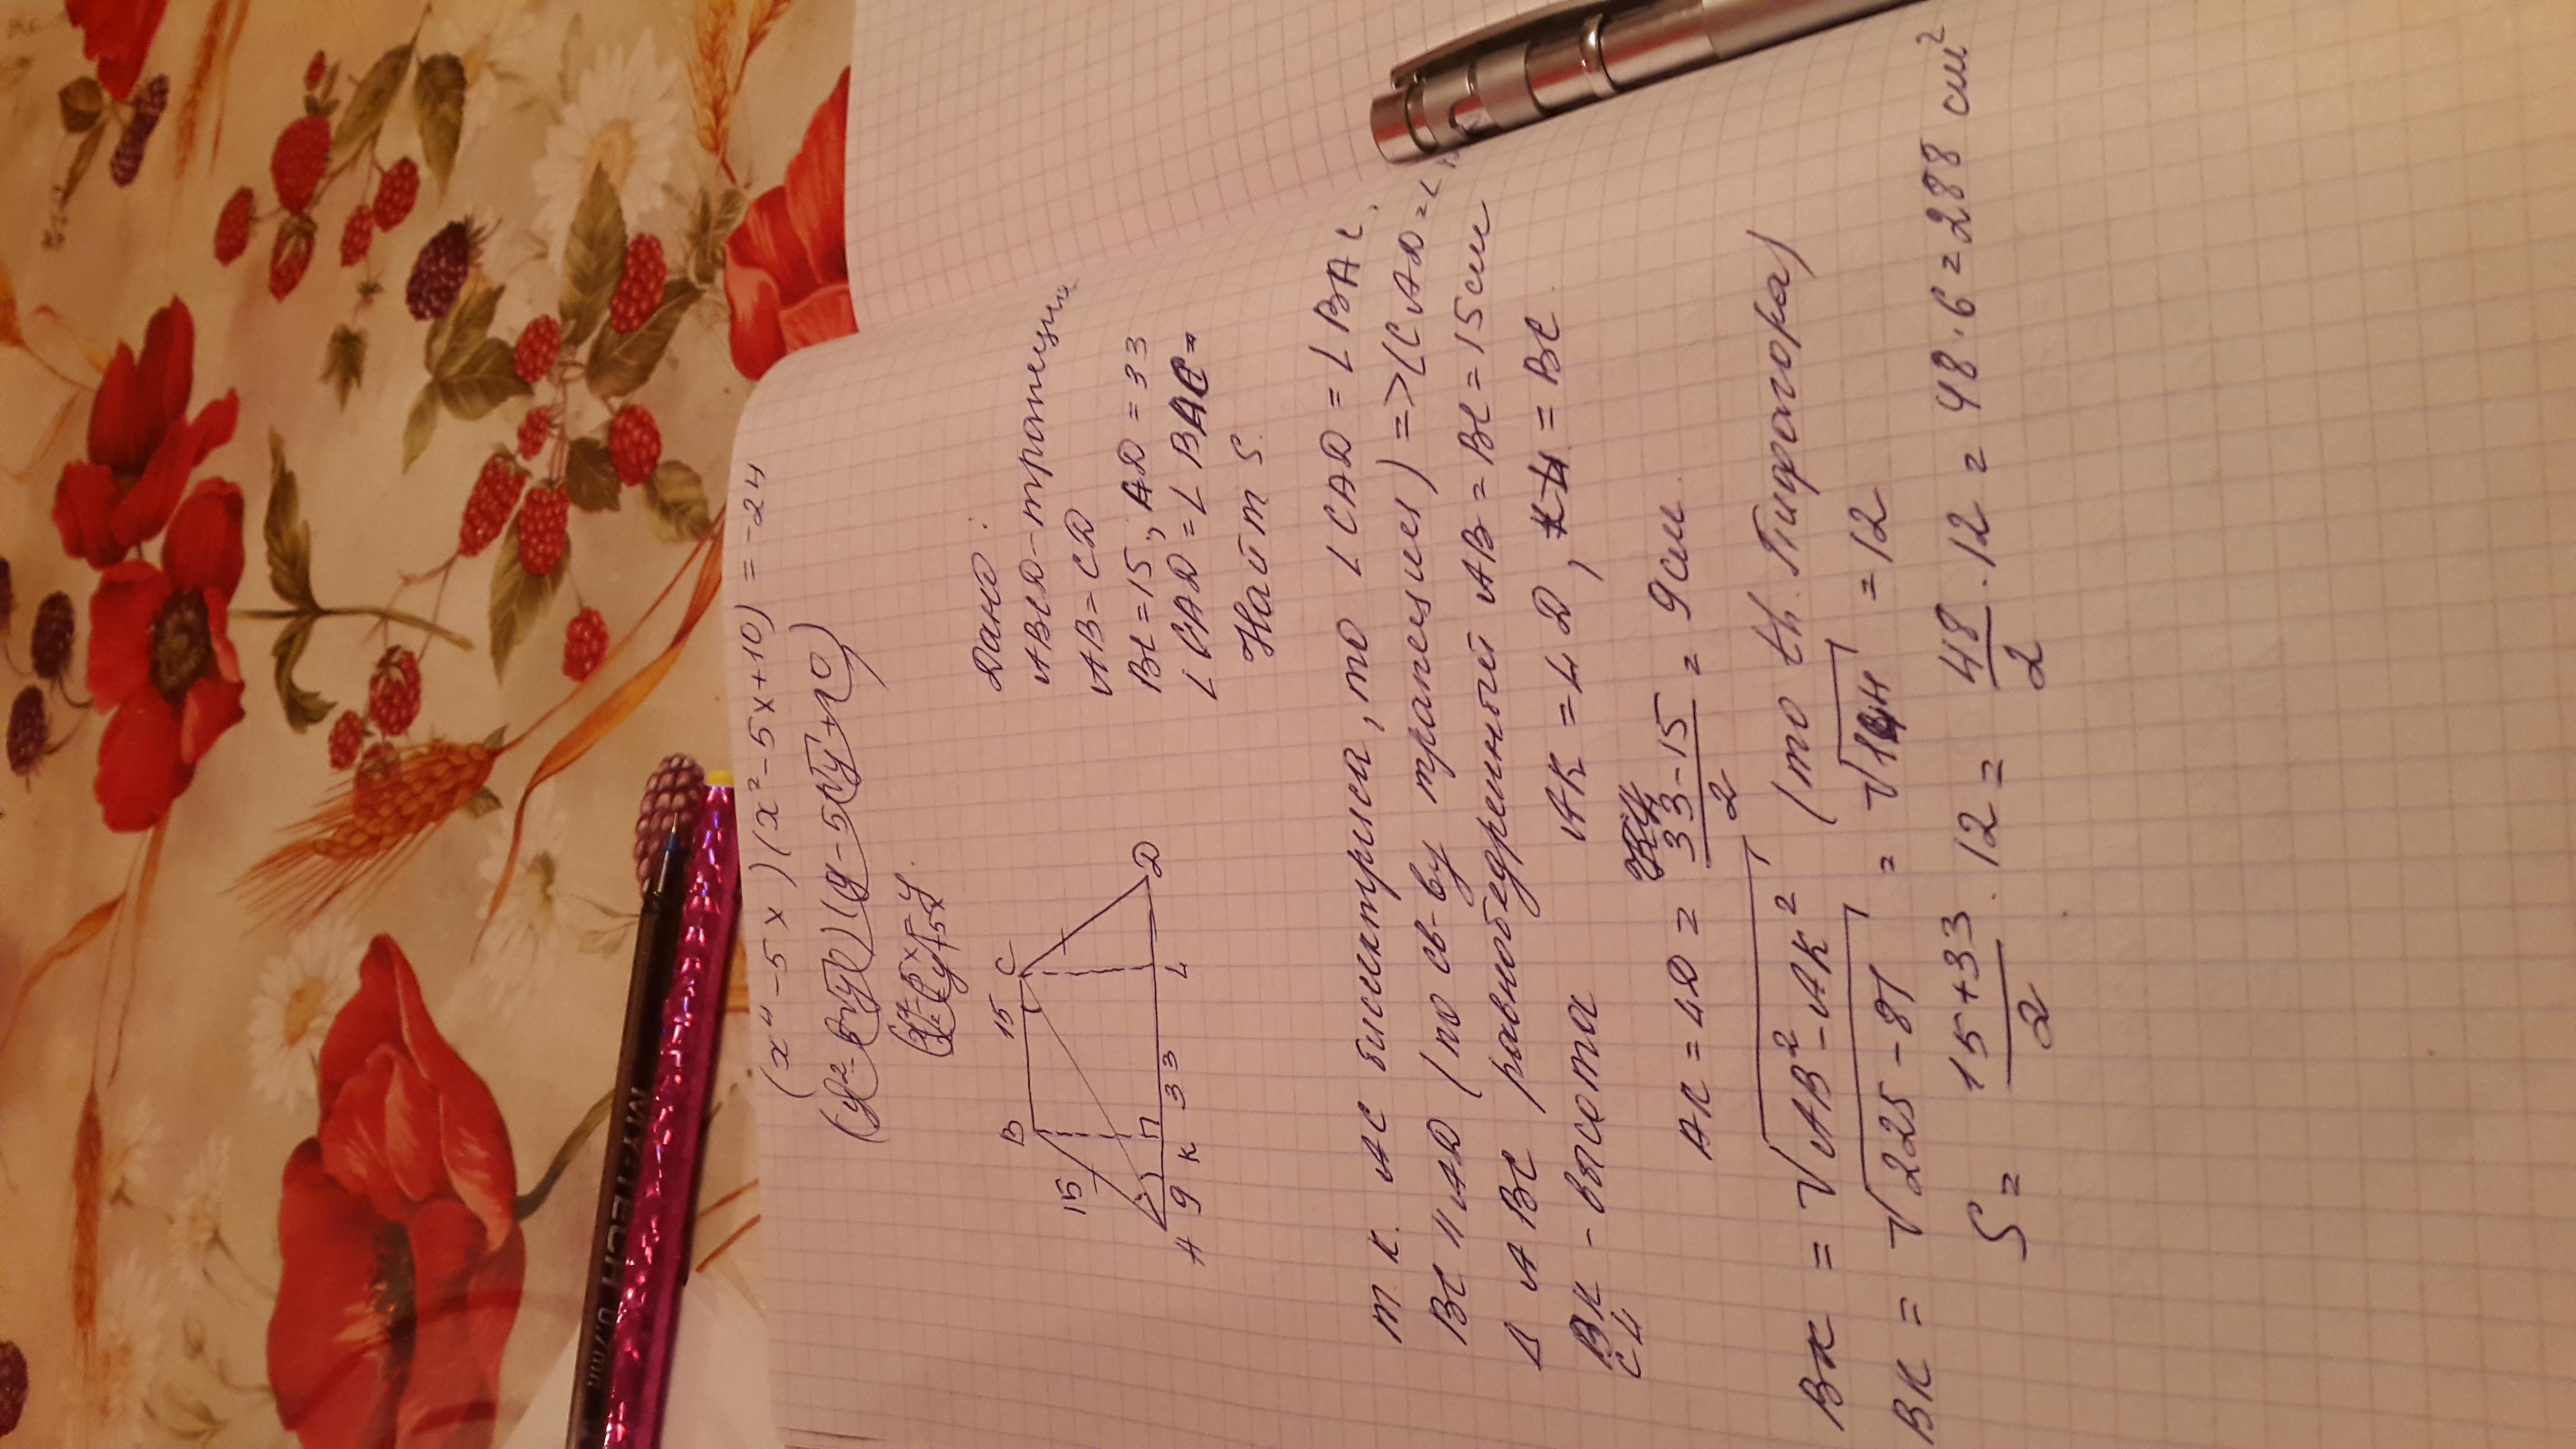 (x⁴ - 5x)(x² - 5x + 10) = -24
Дано:
ABCD - трапеция
AB = CD
BC = 15, AD = 33
∠CAD = ∠BAC
Найти S.
B 15 C
15
A 9 K 33 L D
т к. AC биссектриса, то ∠CAD = ∠BAC.
BC || AD (по св-ву трапеции) => ∠CAD = ∠
Δ ABC равнобедренный AB = BC = 15 см
BK - высота AK = LD, KL = BC.
CL
AK = LD = 33 - 15 / 2 = 9 см.
BK = √AB² - AK² (по th. Пифагора)
BK = √225 - 81 = √144 = 12
S = 15 + 33 / 2 · 12 = 48 / 2 · 12 = 48 · 6 = 288 см²
MY-TECH 0.7mm